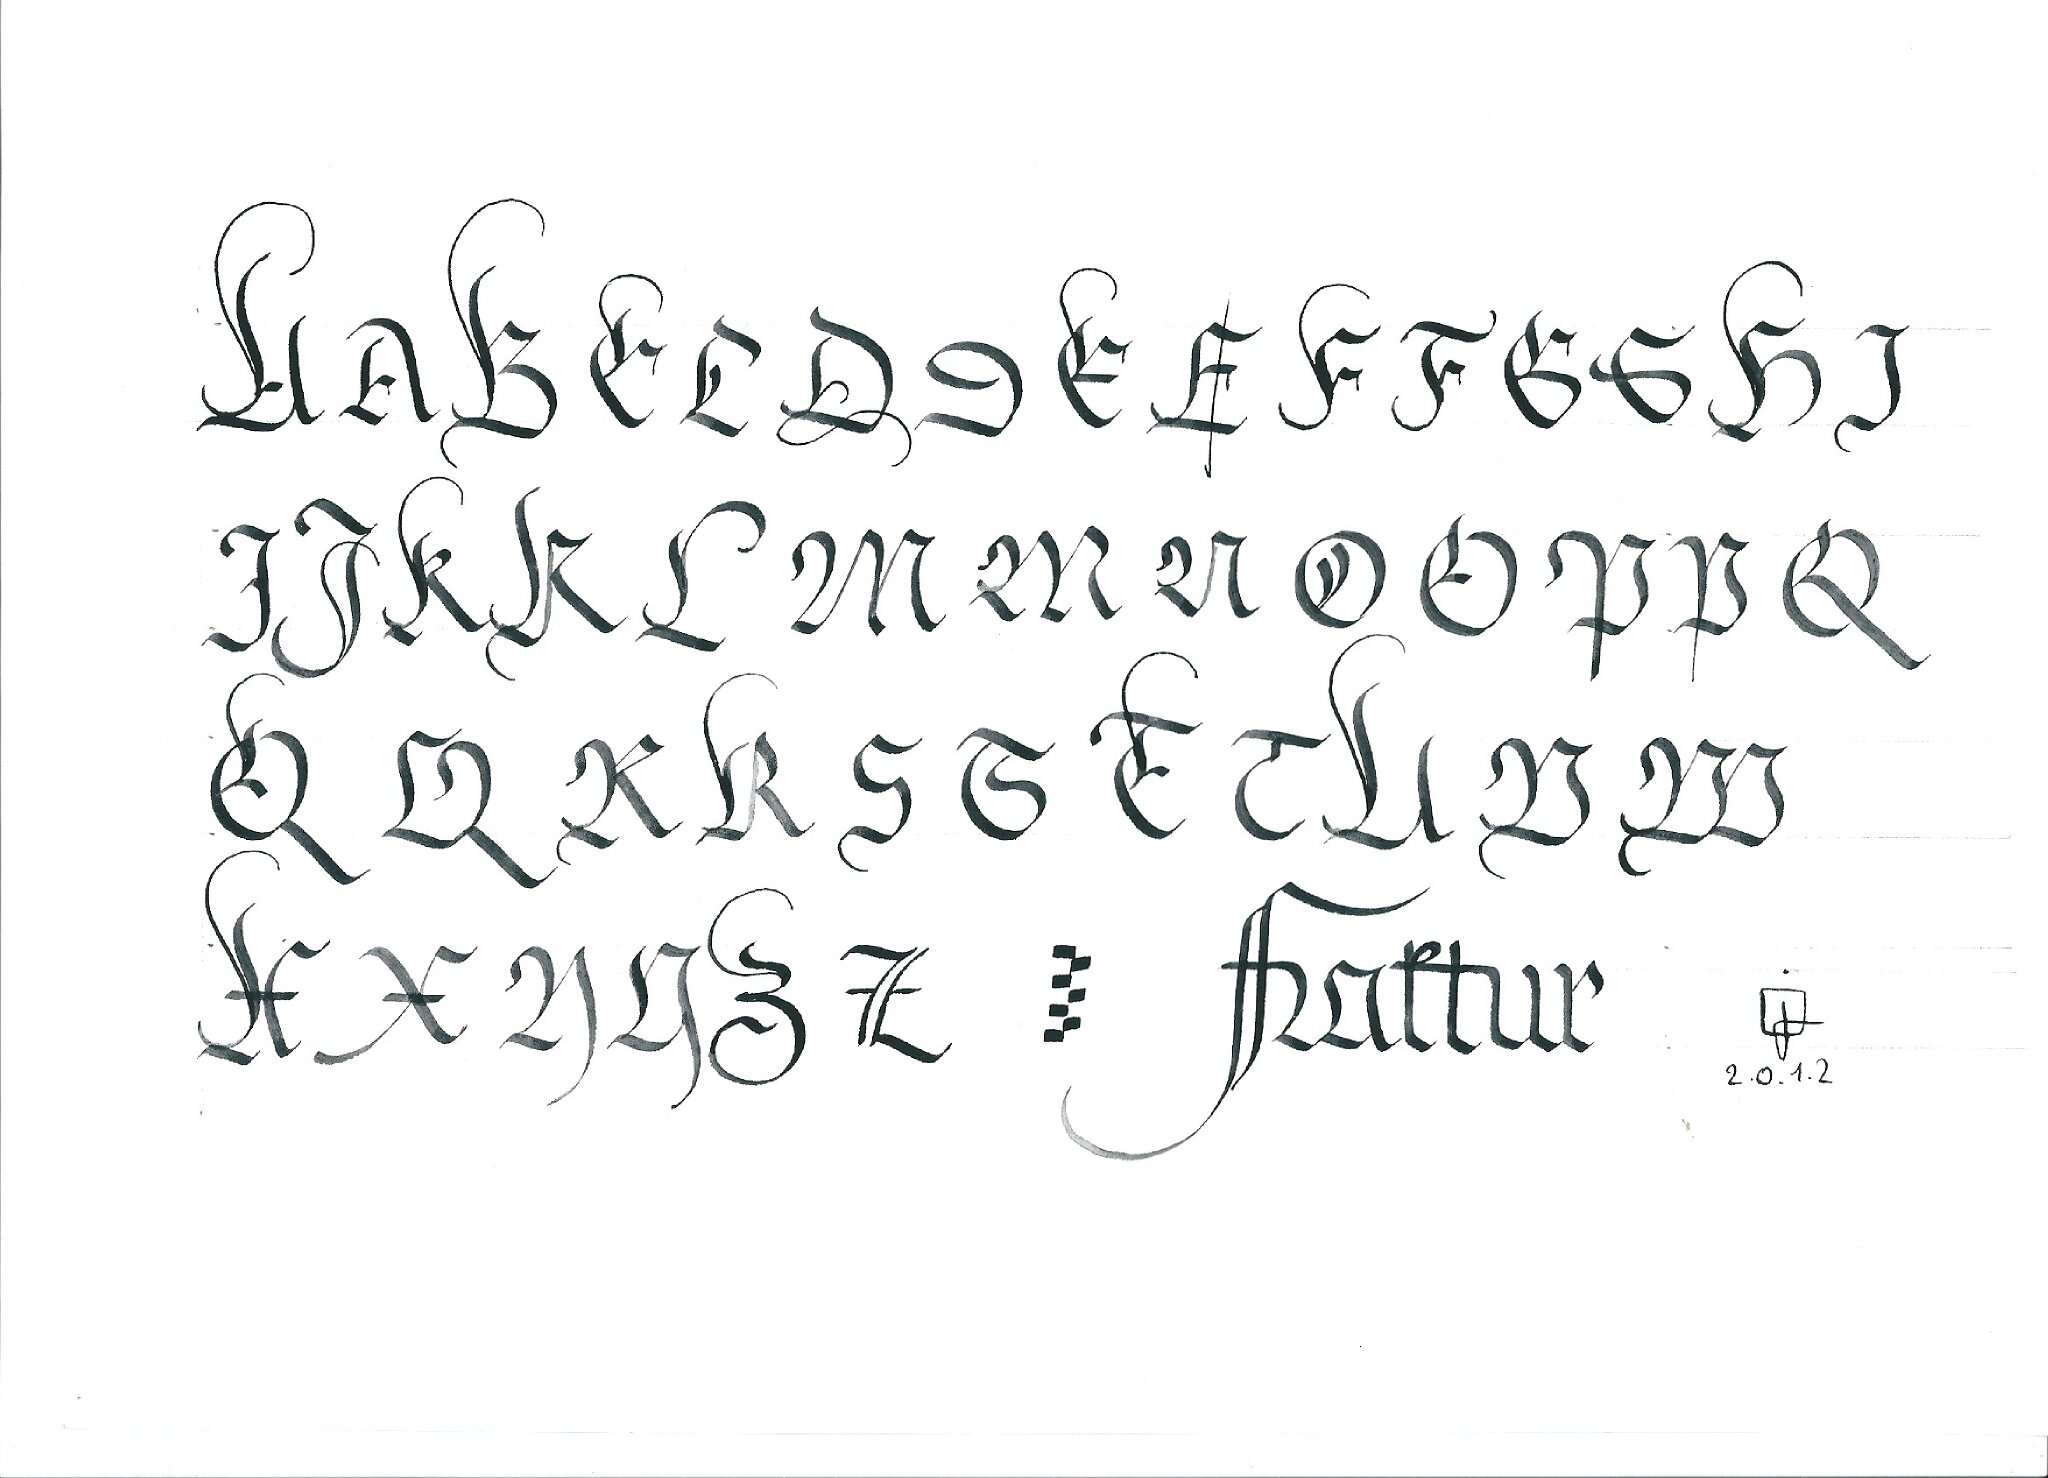 A A B C C D D E E F F G G H I
I J K K L M M N O O P P Q
Q Q R R S S T T U V W
X X Y Y Z Z Fraktur
2.0.1.2